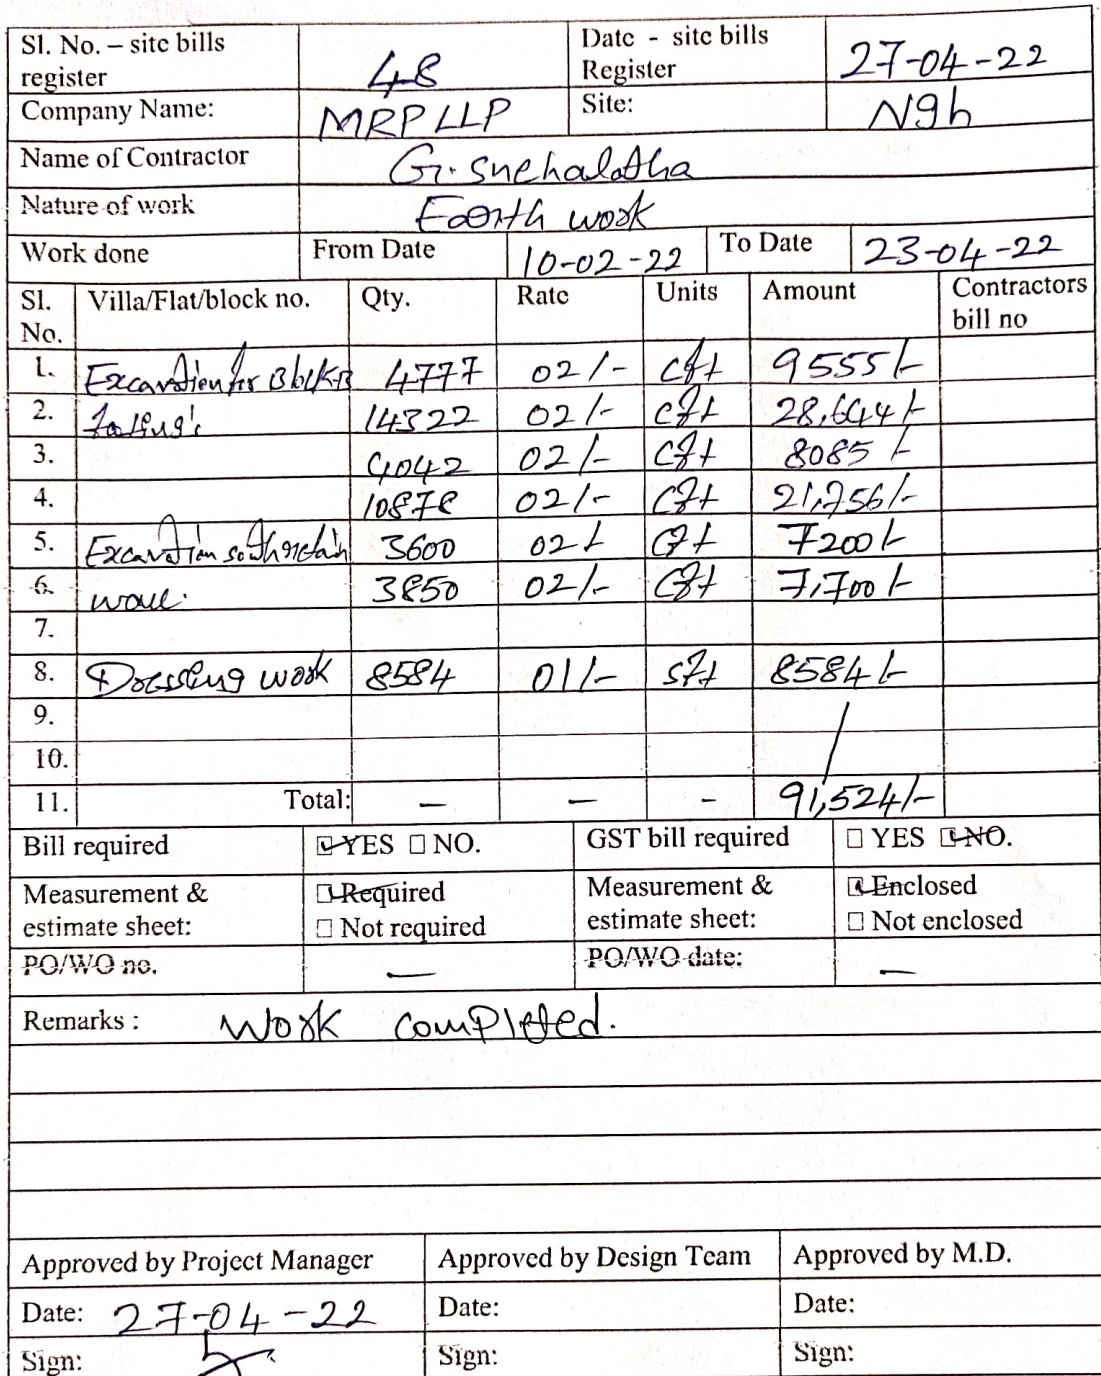 Sl. No. – site bills register 48 Date - site bills Register 27-04-22
Company Name: MRP LLP Site: Ngh
Name of Contractor G. Snehalatha
Nature of work Earth work
Work done From Date 10-02-22 To Date 23-04-22
Sl. No. Villa/Flat/block no. Qty. Rate Units Amount Contractors bill no
1. Excavation for Block-B 4777 02/- cft 9555/-
2. footing's 14322 02/- cft 28,644/-
3. 4042 02/- cft 8085/-
4. 10878 02/- cft 21,756/-
5. Excavation south retain 3600 02/- cft 7200/-
6. wall. 3850 02/- cft 7,700/-
7.
8. Dressing work 8584 01/- sft 8584/-
9.
10.
11. Total: — — - 91,524/-
Bill required YES NO. GST bill required YES NO.
Measurement & estimate sheet: Required Measurement & estimate sheet: Enclosed
Not required Not enclosed
PO/WO no. — PO/WO date: —
Remarks : Work completed.
Approved by Project Manager Approved by Design Team Approved by M.D.
Date: 27-04-22 Date: Date:
Sign: Sign: Sign: